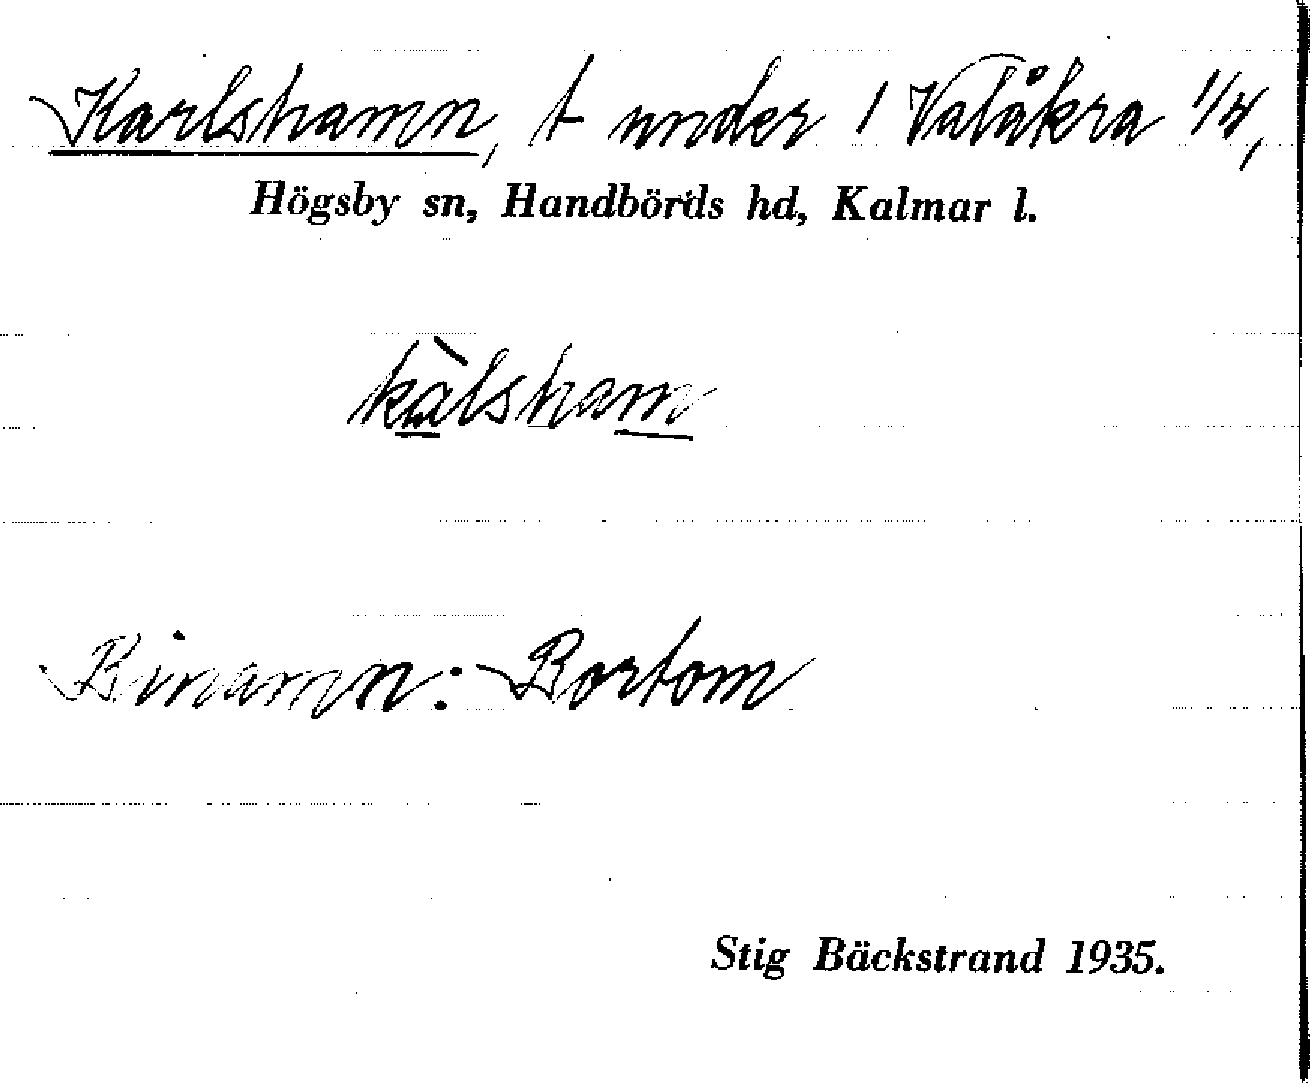 Karlshamn, t under 1 Valåkra 1/4,
Högsby sn, Handbörds hd, Kalmar l.
kàlsham
Binamn: Bortom
Stig Bäckstrand 1935.